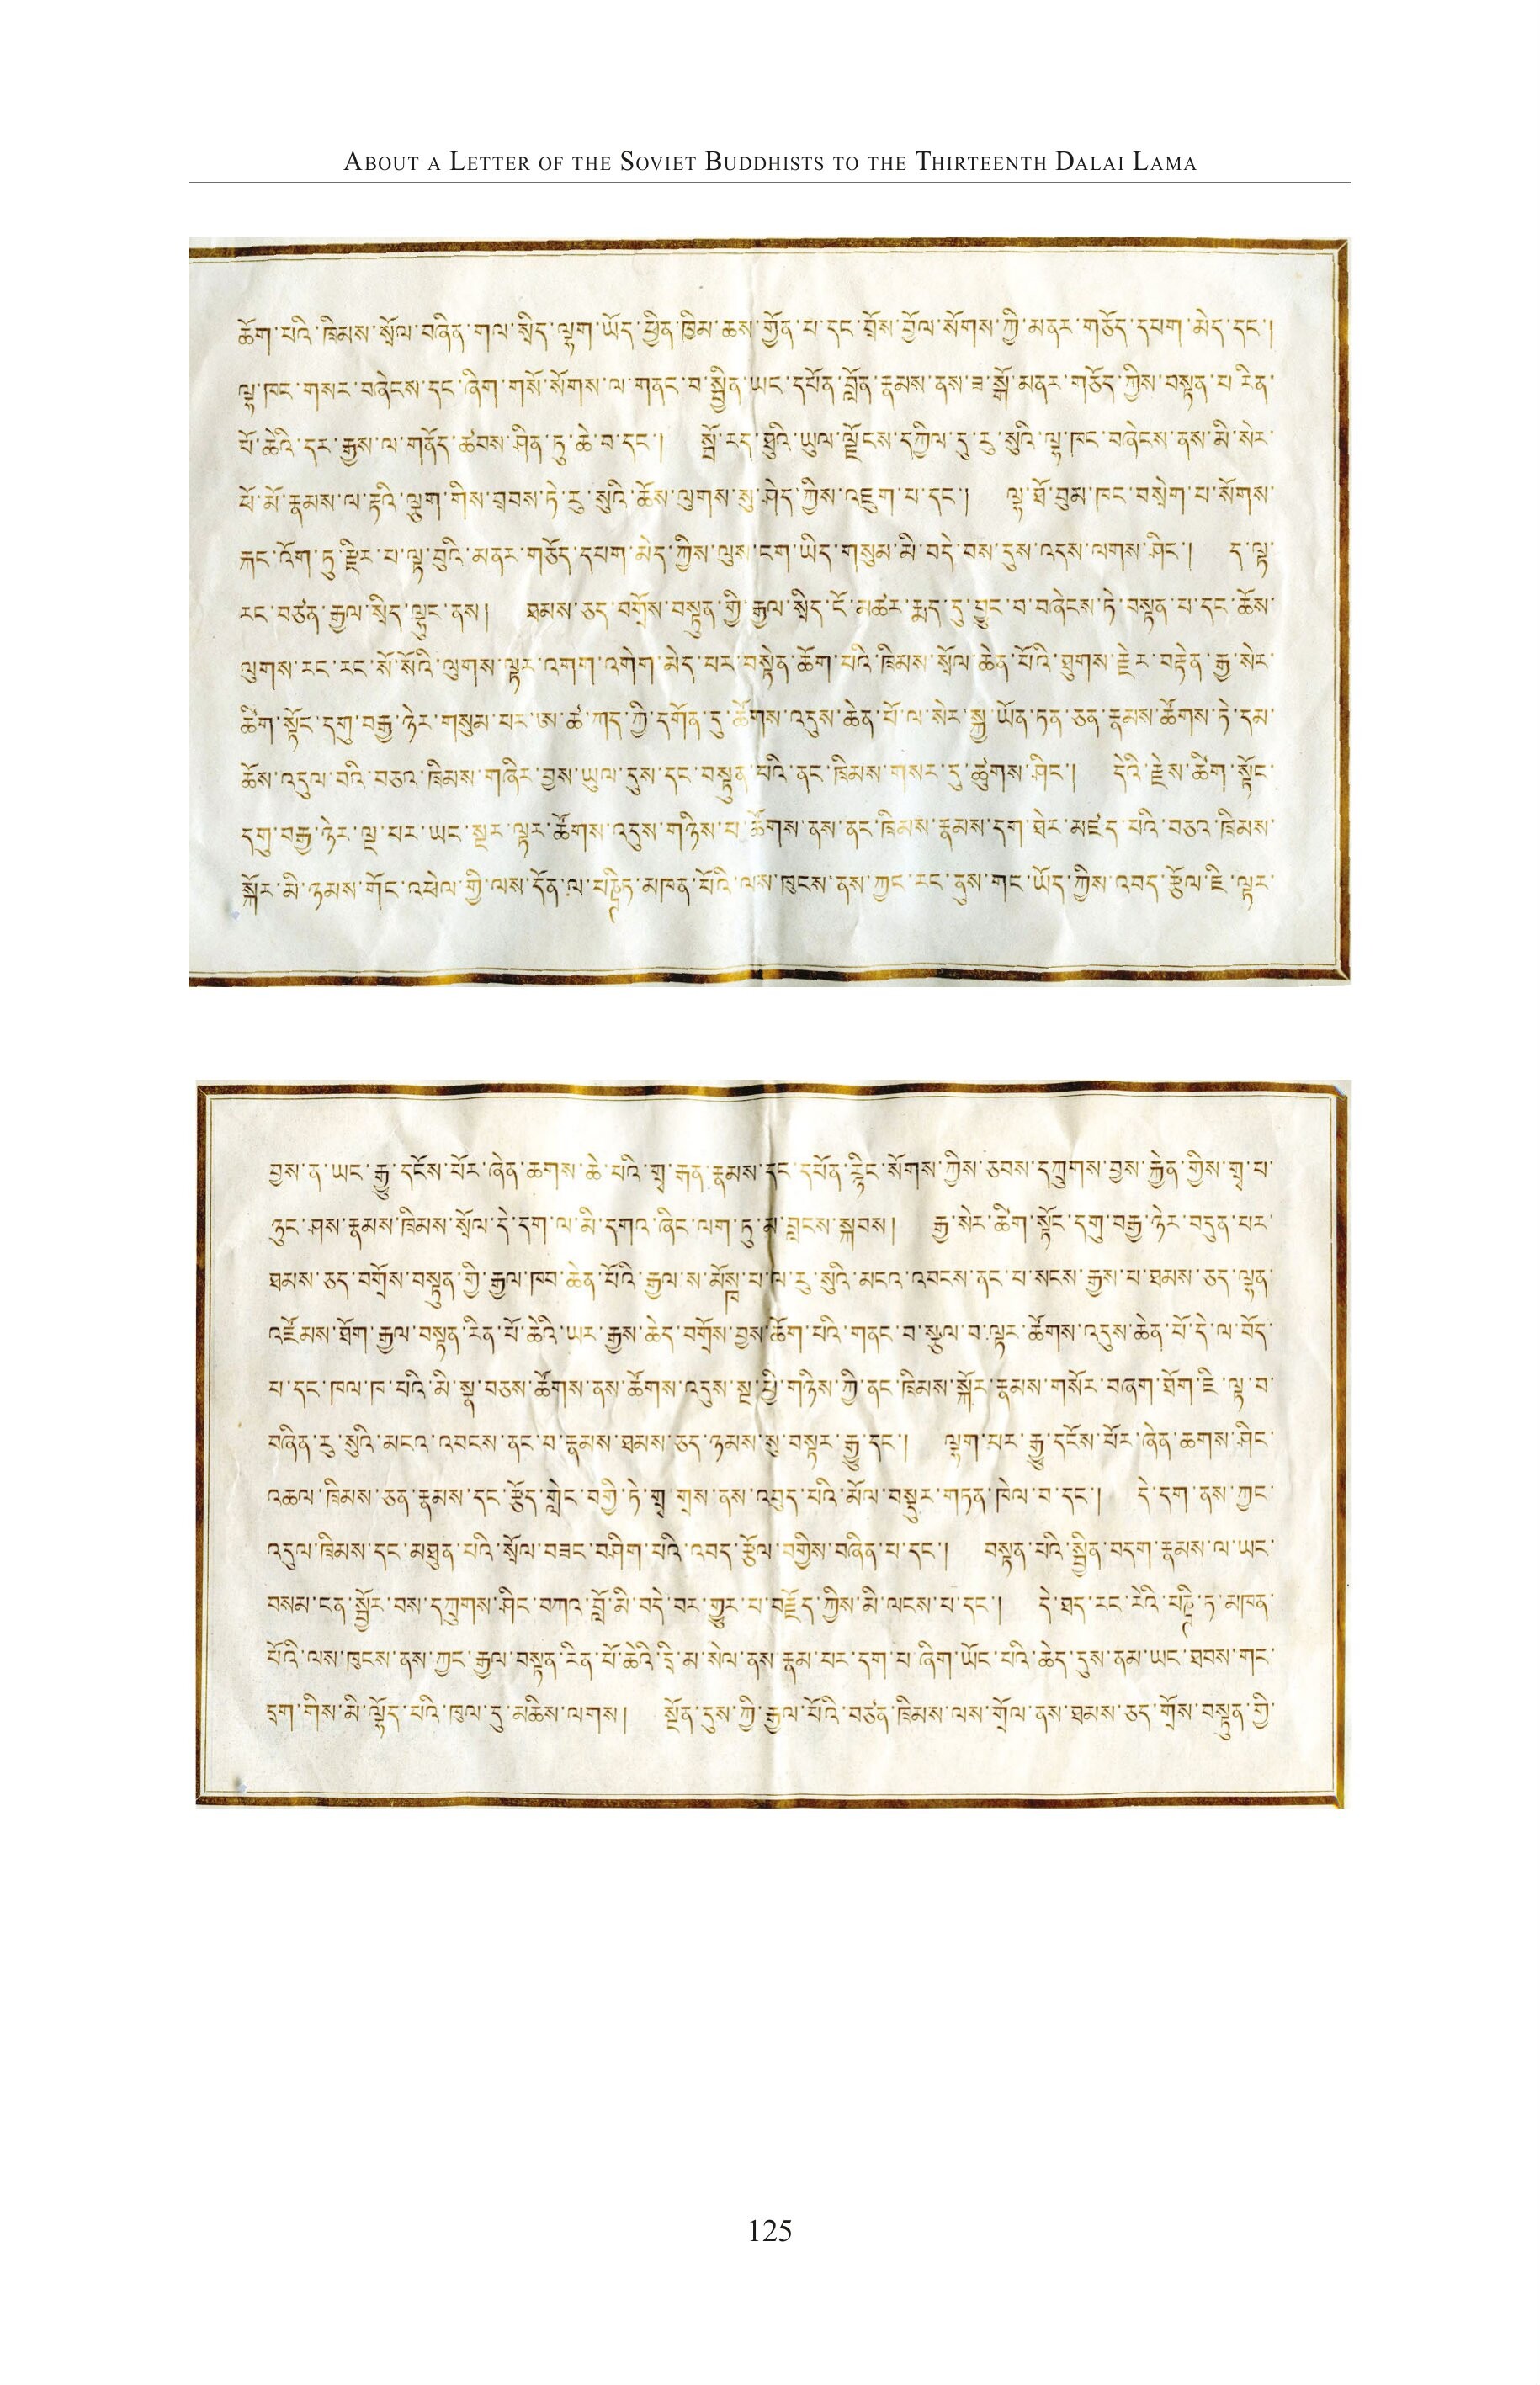 About a Letter of the Soviet Buddhists to the Thirteenth Dalai Lama
ཆོག་པའི་ཁྲིམས་སྲོལ་བཞིན་གལ་སྲིད་ལྷག་ཡོད་ཕྱིན་ཁྱིམ་ཆས་གྱོན་པ་དང་བྲོས་བྱོལ་སོགས་ཀྱི་མནར་གཅོད་དཔག་མེད་དང་།
ལྷ་ཁང་གསར་བཞེངས་དང་ཞིག་གསོ་སོགས་ལ་གནང་བ་སྦྱིན་ཡང་དཔོན་བློན་རྣམས་ནས་ཟ་སྒོ་མནར་གཅོད་ཀྱིས་བསྟན་པ་རིན་
པོ་ཆེའི་དར་རྒྱས་ལ་གནོད་ཚབས་ཤིན་ཏུ་ཆེ་བ་དང་། སྦོ་རད་ཐུའི་ཡུལ་ལྗོངས་དཀྱིལ་དུ་རུ་སུའི་ལྷ་ཁང་བཞེངས་ནས་མི་སེར་
ཕོ་མོ་རྣམས་ལ་རྟའི་ལྕུག་གིས་བྲབས་ཏེ་རུ་སུའི་ཆོས་ལུགས་སུ་ཤེད་ཀྱིས་འཇུག་པ་དང་། ལྷ་ཐོ་བུམ་ཁང་བསྲེག་པ་སོགས་
རྐང་འོག་ཏུ་རྫིར་པ་ལྟ་བུའི་མནར་གཅོད་དཔག་མེད་ཀྱིས་ལུས་ངག་ཡིད་གསུམ་མི་བདེ་བས་དུས་འདས་ལགས་ཤིང་། ད་ལྟ་
རང་བཙན་རྒྱལ་སྲིད་ལྷུང་ནས། ཐམས་ཅད་བགྲོས་བསྟུན་གྱི་རྒྱལ་སྲིད་ངོ་མཚར་རྨད་དུ་བྱུང་བ་བཞེངས་ཏེ་བསྟན་པ་དང་ཆོས་
ལུགས་རང་རང་སོ་སོའི་ལུགས་ལྟར་འགག་འགེག་མེད་པར་བསྟེན་ཆོག་པའི་ཁྲིམས་སྲོལ་ཆེན་པོའི་ཐུགས་རྗེར་བརྟེན་རྒྱ་སེར་
ཚིག་སྟོང་དགུ་བརྒྱ་ཉེར་གསུམ་པར་ཨ་ཚ་ཀད་ཀྱི་དགོན་དུ་ཚོགས་འདུས་ཆེན་པོ་ལ་སེར་སྐྱ་ཡོན་ཏན་ཅན་རྣམས་ཚོགས་ཏེ་དམ་
ཆོས་འདུལ་བའི་བཅའ་ཁྲིམས་གཞིར་བྱས་ཡུལ་དུས་དང་བསྟུན་པའི་ནང་ཁྲིམས་གསར་དུ་ཚུགས་ཤིང་། དེའི་རྗེས་ཚིག་སྟོང་
དགུ་བརྒྱ་ཉེར་ལྔ་པར་ཡང་སྔར་ལྟར་ཚོགས་འདུས་གཉིས་པ་ཚོགས་ནས་ནང་ཁྲིམས་རྣམས་དག་ཐེར་མཛད་པའི་བཅའ་ཁྲིམས་
སྐོར་མི་ཉམས་གོང་འཕེལ་གྱི་ལས་དོན་ལ་པཎྜི་ཏ་མཁན་པོའི་ལས་ཁུངས་ནས་ཀྱང་རང་ནུས་གང་ཡོད་ཀྱིས་འབད་རྩོལ་ཇི་ལྟར་
བྱས་ན་ཡང་རྒྱུ་དངོས་པོར་ཞེན་ཆགས་ཆེ་པའི་གྲྭ་རྒན་རྣམས་དང་དཔོན་རྙིང་སོགས་ཀྱིས་ཅབས་དཀྲུགས་བྱས་རྐྱེན་གྱིས་གྲྭ་པ་
ཉུང་ཤས་རྣམས་ཁྲིམས་སྲོལ་དེ་དག་ལ་མི་དགའ་ཞིང་ལག་ཏུ་མ་བླངས་སྐབས། རྒྱ་སེར་ཚིག་སྟོང་དགུ་བརྒྱ་ཉེར་བདུན་པར་
ཐམས་ཅད་བགྲོས་བསྟུན་གྱི་རྒྱལ་ཁབ་ཆེན་པོའི་རྒྱལ་ས་མོསྐྭ་པ་ལ་རུ་སུའི་མངའ་འབངས་ནང་པ་སངས་རྒྱས་པ་ཐམས་ཅད་ལྷན་
འཛོམས་ཐོག་རྒྱལ་བསྟན་རིན་པོ་ཆེའི་ཡར་རྒྱས་ཆེད་བགྲོས་བྱས་ཆོག་པའི་གནང་བ་སྩལ་བ་ལྟར་ཚོགས་འདུས་ཆེན་པོ་དེ་ལ་བོད་
པ་དང་ཁལ་ཁ་པའི་མི་སྣ་བཅས་ཚོགས་ནས་ཚོགས་འདུས་སྔ་ཕྱི་གཉིས་ཀྱི་ནང་ཁྲིམས་སྐོར་རྣམས་གསོར་བཞག་ཐོག་ཇི་ལྟ་བ་
བཞིན་རུ་སུའི་མངའ་འབངས་ནང་བ་རྣམས་ཐམས་ཅད་ཉམས་སུ་བསྟར་རྒྱུ་དང་། ལྷག་པར་རྒྱུ་དངོས་པོར་ཞེན་ཆགས་ཤིང་
འཆལ་ཁྲིམས་ཅན་རྣམས་དང་རྩོད་གླེང་བགྱི་ཏེ་གྲྭ་གྲས་ནས་འབུད་པའི་མོལ་བསྡུར་གཏན་ཁེལ་བ་དང་། དེ་དག་ནས་ཀྱང་
འདུལ་ཁྲིམས་དང་མཐུན་པའི་སྲོལ་བཟང་བཤིག་པའི་འབད་རྩོལ་བགྱིས་བཞིན་པ་དང་། བསྟན་པའི་སྦྱིན་བདག་རྣམས་ལ་ཡང་
བསམ་ངན་སྦྱོར་བས་དཀྲུགས་ཤིང་བཀའ་བློ་མི་བདེ་བར་གྱུར་པ་བརྗོད་ཀྱིས་མི་ལངས་པ་དང་། དེ་ཐད་རང་རེའི་པཎྜི་ཏ་མཁན་
པོའི་ལས་ཁུངས་ནས་ཀྱང་རྒྱལ་བསྟན་རིན་པོ་ཆེའི་དྲི་མ་སེལ་ནས་རྣམ་པར་དག་པ་ཞིག་ཡོང་པའི་ཆེད་དུས་ནམ་ཡང་ཐབས་གང་
དྲག་གིས་མི་ལྷོད་པའི་ཁུལ་དུ་མཆིས་ལགས། སྔོན་དུས་ཀྱི་རྒྱལ་པོའི་བཙན་ཁྲིམས་ལས་གྲོལ་ནས་ཐམས་ཅད་གྲོས་བསྟུན་གྱི་
125